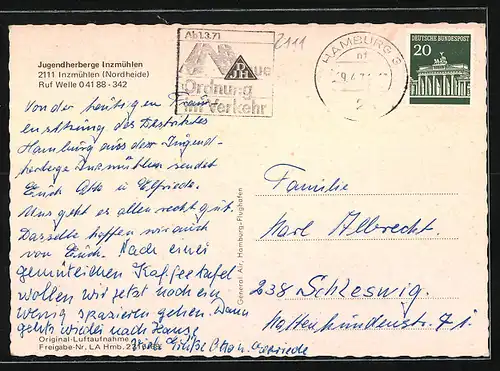 Jugendherberge Inzmühlen
2111 Inzmühlen (Nordheide)
Ruf Welle 04188 - 342
Von der heutigen
des Bezirkes
Hamburg aus der Jugend-
herberge Inzmühlen sendet
Euch Otto u. Elfriede.
Uns geht es allen recht gut.
Dasselbe hoffen wir auch
von Euch. Nach einer
gemütlichen Kaffeetafel
wollen wir jetzt noch ein
wenig spazieren gehen. Dann
geht's wieder nach Hause
Viele Grüße Otto u. Elfriede
Original-Luftaufnahme
Freigabe-Nr. LA Hmb.
General Air, Hamburg-Flughafen
Ab 1.3.71
DJH
Neue
Ordnung
im Verkehr
2111
HAMBURG
DEUTSCHE BUNDESPOST
20
Familie
Karl Albrecht.
238 Schleswig.